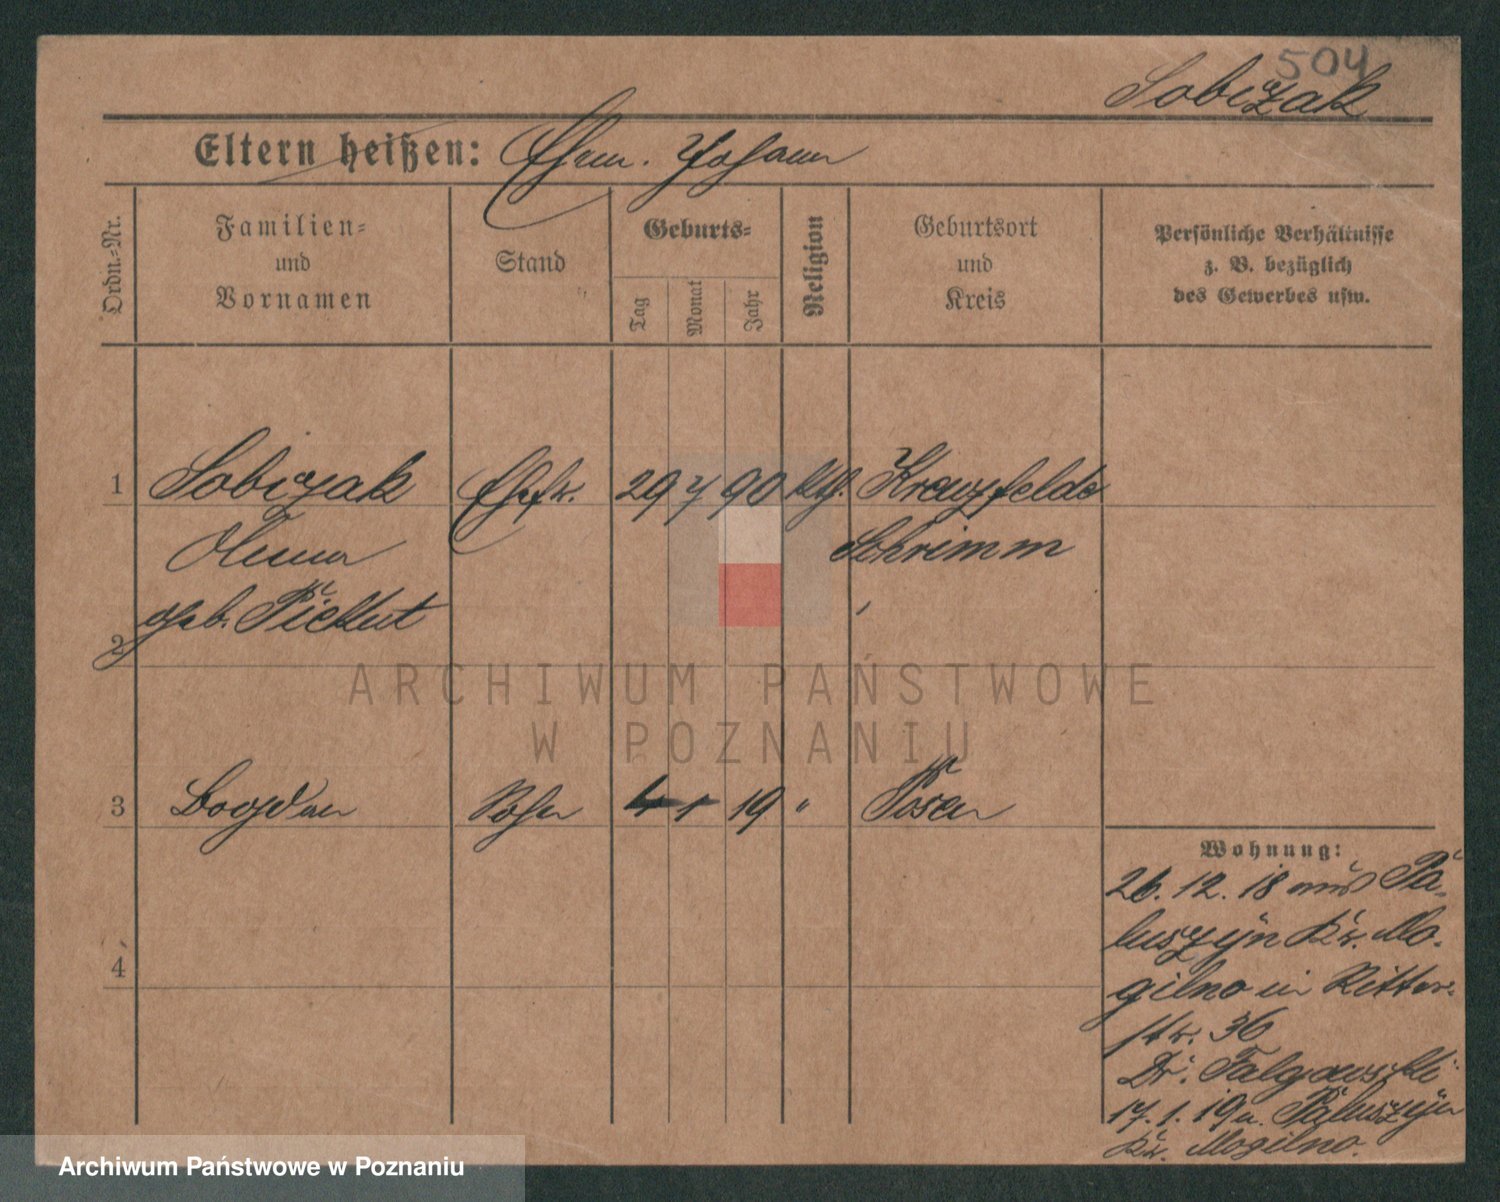 504
Sobczak
Eltern heißen: Ehem. Johann
Ordn.=Nr.
Familien=
und
Vornamen
Stand
Geburts=
Tag
Monat
Jahr
Religion
Geburtsort
und
Kreis
Persönliche Verhältnisse
z. B. bezüglich
des Gewerbes usw.
1 Sobczak Ehefr. 29 7 90 kth. Kreuzfelde
Schrimm
geb.
2
3 Bogdan Sohn 4 1 19 " Posen
4
Wohnung:
26. 12. 18 aus Pa-
luszyn Kr. Mo-
gilno in Ritter-
str. 36
Dr. Falgowski
17. 1. 19 n. Paluszyn
Kr. Mogilno.
ARCHIWUM PAŃSTWOWE
W POZNANIU
Archiwum Państwowe w Poznaniu